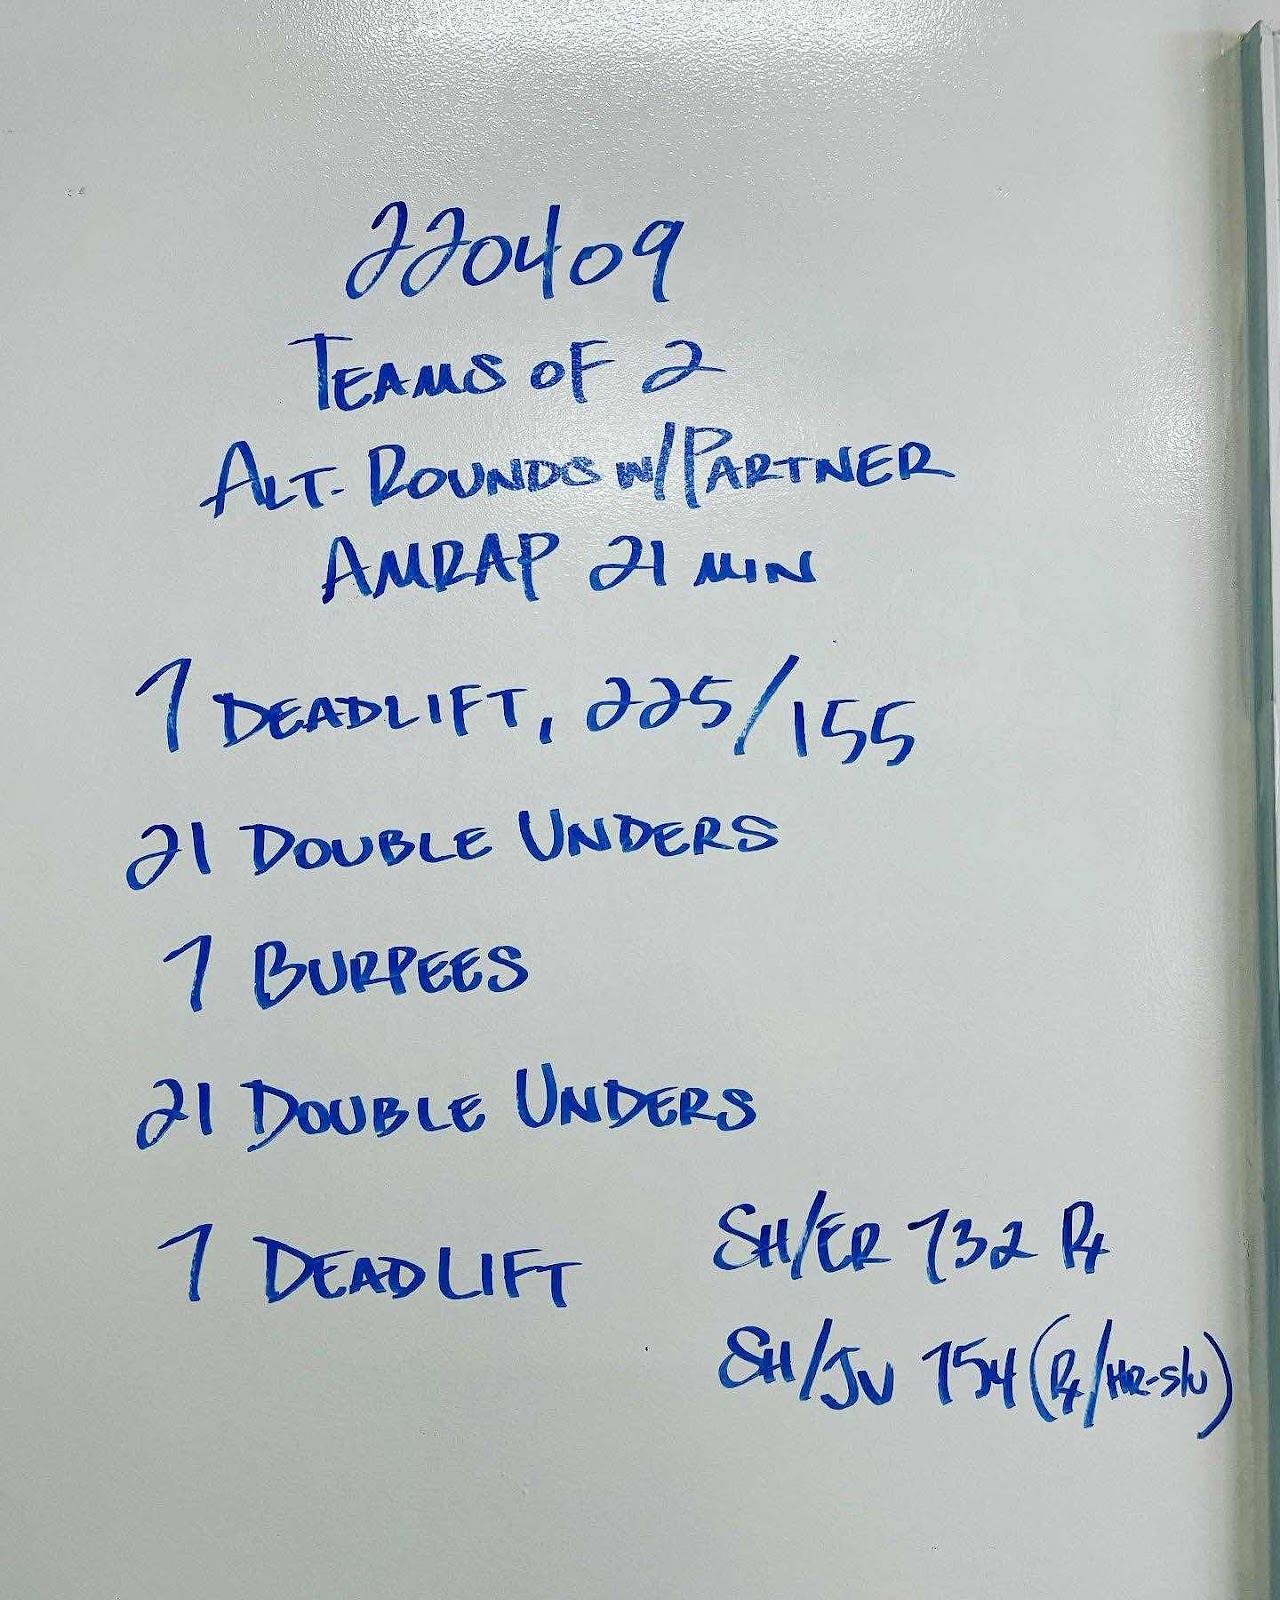 220409
TEAMS OF 2
ALT. ROUNDS W/PARTNER
AMRAP 21 MIN
7 DEADLIFT, 225/155
21 DOUBLE UNDERS
7 BURPEES
21 DOUBLE UNDERS
7 DEADLIFT
SH/ER 732 Rx
SH/JV 754 (Rx/HR-S/U)